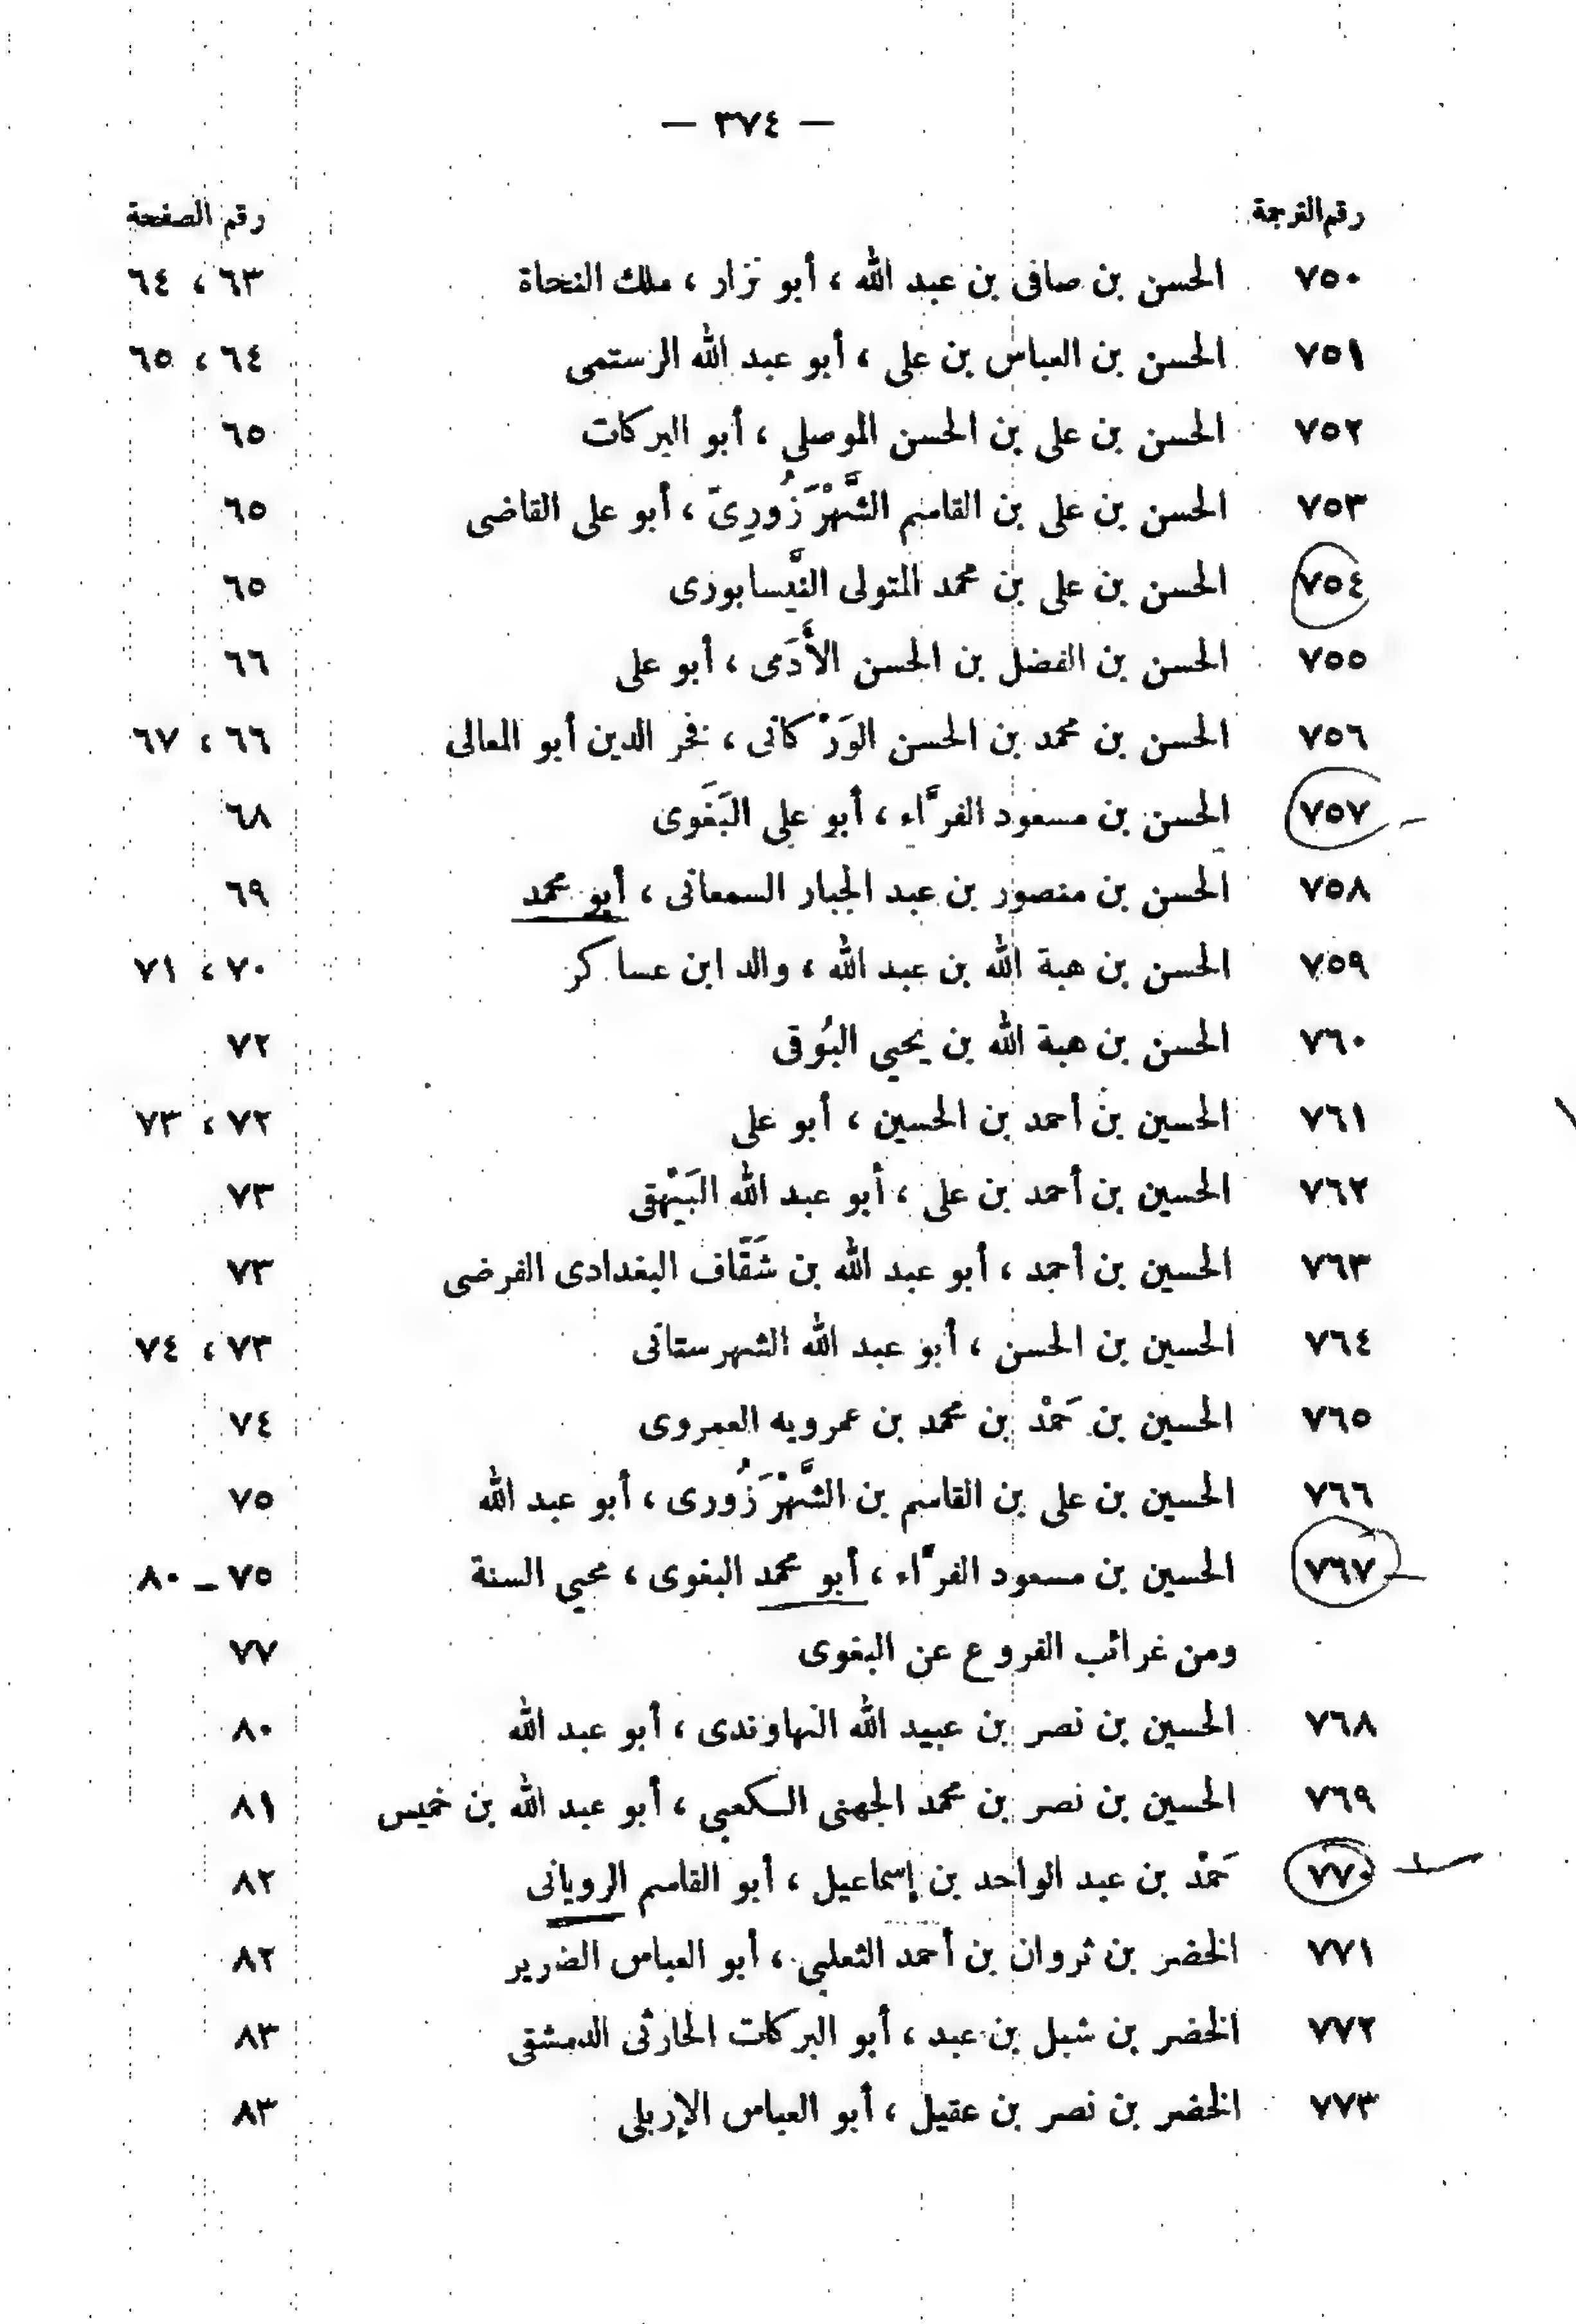 — ٣٧٤ —
رقم الترجمة رقم الصفحة
٧٥٠ الحسن بن صافى بن عبد الله ، أبو نزار ، ملك النحاة ٦٣ ، ٦٤
٧٥١ الحسن بن العباس بن على ، أبو عبد الله الرستمى ٦٤ ، ٦٥
٧٥٢ الحسن بن على بن الحسن الموصلى ، أبو البركات ٦٥
٧٥٣ الحسن بن على بن القاسم الشَّهْرَزُورِىّ ، أبو على القاضى ٦٥
٧٥٤ الحسن بن على بن محمد المتولى النَّيسابورى ٦٥
٧٥٥ الحسن بن الفضل بن الحسن الأَدَمى ، أبو على ٦٦
٧٥٦ الحسن بن محمد بن الحسن الوَرْكانى ، فخر الدين أبو المعالى ٦٦ ، ٦٧
٧٥٧ الحسن بن مسعود الفرَّاء ، أبو على البَغَوى ٦٨
٧٥٨ الحسن بن منصور بن عبد الجبار السمعانى ، أبو محمد ٦٩
٧٥٩ الحسن بن هبة الله بن عبد الله ، والد ابن عساكر ٧٠ ، ٧١
٧٦٠ الحسن بن هبة الله بن يحيى البُوقى ٧٢
٧٦١ الحسين بن أحمد بن الحسين ، أبو على ٧٢ ، ٧٣
٧٦٢ الحسين بن أحمد بن على ، أبو عبد الله البَيْهقى ٧٣
٧٦٣ الحسين بن أحمد ، أبو عبد الله بن شَقَّاف البغدادى الفرضى ٧٣
٧٦٤ الحسين بن الحسن ، أبو عبد الله الشهرستانى ٧٣ ، ٧٤
٧٦٥ الحسين بن حَمْد بن محمد بن عمرويه العمروى ٧٤
٧٦٦ الحسين بن على بن القاسم بن الشَّهْرَزُورى ، أبو عبد الله ٧٥
٧٦٧ الحسين بن مسعود الفرَّاء ، أبو محمد البغوى ، محيي السنة ٧٥ – ٨٠
ومن غرائب الفروع عن البغوى ٧٧
٧٦٨ الحسين بن نصر بن عبيد الله النهاوندى ، أبو عبد الله ٨٠
٧٦٩ الحسين بن نصر بن محمد الجهنى الكعبى ، أبو عبد الله بن خميس ٨١
٧٧٠ حَمْد بن عبد الواحد بن إسماعيل ، أبو القاسم الرويانى ٨٢
٧٧١ الخضر بن ثروان بن أحمد الثعلبى ، أبو العباس الضرير ٨٢
٧٧٢ الخضر بن شبل بن عبد ، أبو البركات الحارثى الدمشقى ٨٣
٧٧٣ الخضر بن نصر بن عقيل ، أبو العباس الإربلى ٨٣